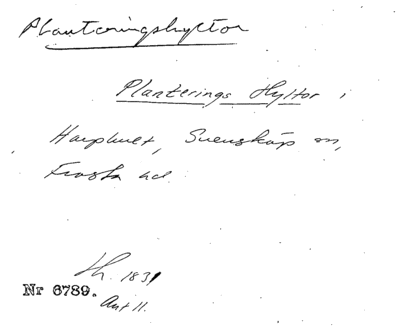 Planteringshyltor
Planterings Hyltor i
Harphult, Svensköp sn,
Frosta hd.
Th. 1831
Nr 6789.
Ant 11.